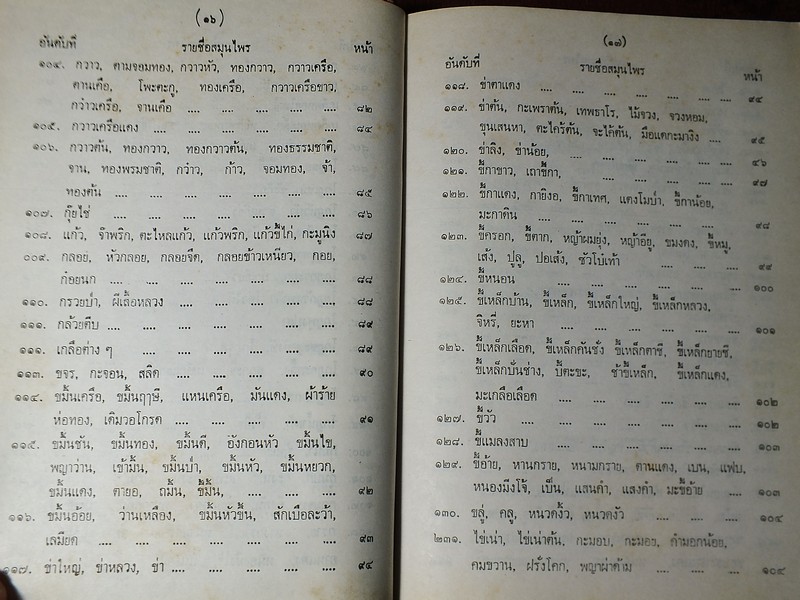 (๑๖)
อันดับที่ รายชื่อสมุนไพร หน้า
๑๐๔. กวาว, ตามจอมทอง, กวาวหัว, ทองกวาว, กวาวเครือ,
ตานเคือ, โพะตะกู, ทองเครือ, กวาวเครือขาว,
กว๋าวเครือ, จานเคือ .... .... .... .... .... ๘๒
๑๐๕. กวาวเครือแดง .... .... .... .... .... ๘๔
๑๐๖. กวาวต้น, ทองกวาว, ทองกวาวต้น, ทองธรรมชาติ,
จาน, ทองพรมชาติ, กว๋าว, ก๋าว, จอมทอง, จ้า,
ทองต้น .... .... .... .... .... .... ๘๕
๑๐๗. กุ๊ยไช่ .... .... .... .... .... .... ๘๖
๑๐๘. แก้ว, จ๊าพริก, ตะไหลแก้ว, แก้วพริก, แก้วขี้ไก่, กะมูนิง ๘๗
๐๐๙. กลอย, หัวกลอย, กลอยจืด, กลอยข้าวเหนียว, กอย,
ก๋อยนก .... .... .... .... .... .... ๘๘
๑๑๐. กรวยป่า, ผีเสื้อหลวง .... .... .... .... ๘๘
๑๑๑. กล้วยตีบ .... .... .... .... .... .... ๘๙
๑๑๑. เกลือต่าง ๆ .... .... .... .... .... ๘๙
๑๑๓. ขจร, กะจอน, สลิด .... .... .... .... ๙๐
๑๑๔. ขมิ้นเครือ, ขมิ้นฤๅษี, แหนเครือ, มันแดง, ผ้าร้าย
ห่อทอง, เดิมวอโกรด .... .... .... .... ๙๑
๑๑๕. ขมิ้นชัน, ขมิ้นทอง, ขมิ้นดี, อังกอนหัว ขมิ้นไข,
พญาว่าน, เข้ามิ้น, ขมิ้นป่า, ขมิ้นหัว, ขมิ้นหยวก,
ขมิ้นแดง, ตายอ, ถมิ้น, ขี้มิ้น, .... .... .... ๙๒
๑๑๖. ขมิ้นอ้อย, ว่านเหลือง, ขมิ้นหัวขึ้น, สักเบือละว้า,
เลมียด .... .... .... .... .... .... ๙๓
๑๑๗. ข่าใหญ่, ข่าหลวง, ข่า .... .... .... .... ๙๔
(๑๗)
อันดับที่ รายชื่อสมุนไพร หน้า
๑๑๘. ข่าตาแดง .... .... .... .... .... .... ๙๔
๑๑๙. ข่าต้น, กะเพราต้น, เทพธาโร, ไม้จวง, จวงหอม,
ขุนเสนหา, ตะไคร้ต้น, จะไค้ต้น, มือแดกะมางิง .... ๙๕
๑๒๐. ข่าลิง, ข่าน้อย, .... .... .... .... .... ๔๖
๑๒๑. ขี้กาขาว, เถาขี้กา, .... .... .... .... ๙๗
๑๒๒. ขี้กาแดง, กายิงอ, ขี้กาเทศ, แตงโมป่า, ขี้กาน้อย,
มะกาดิน .... .... .... .... .... .... ๙๘
๑๒๓. ขี้ครอก, ขี้คาก, หญ้าผมยุ่ง, หญ้าอียู, ขมงดง, ขี้หมู,
เส้ง, ปูลู, ปอเส้ง, ชัวโบ่เท้า .... .... .... ๙๙
๑๒๔. ขี้หนอน .... .... .... .... .... .... ๑๐๐
๑๒๕. ขี้เหล็กบ้าน, ขี้เหล็ก, ขี้เหล็กใหญ่, ขี้เหล็กหลวง,
จิหรี่, ยะหา .... .... .... .... .... ๑๐๑
๑๒๖. ขี้เหล็กเลือด, ขี้เหล็กคันชั่ง ขี้เหล็กตาซี, ขี้เหล็กยายซี,
ขี้เหล็กป่นช่าง, ป้๊ตะขะ, ช้าขี้เหล็ก, ขี้เหล็กแดง,
มะเกลือเลือด .... .... .... .... .... ๑๐๒
๑๒๗. ขี้วัว .... .... .... .... .... .... ๑๐๒
๑๒๘. ขี้แมลงสาบ .... .... .... .... .... ๑๐๓
๑๒๙. ขี้อ้าย, หานกราย, หนามกราย, ตานแดง, เบน, แฟบ,
หนองมึงโจ้, เบ็น, แสนคำ, แสงคำ, มะขี้อ้าย .... ๑๐๓
๑๓๐. ขลู่, คลู, หนวดงิ้ว, หนวดงัว .... .... .... ๑๐๔
๒๓๑. ไข่เน่า, ไข่เน่าต้น, กะมอบ, กะมอง, คำมอกน้อย,
คมขวาน, ฝรั่งโคก, พญาผ่าด้าม .... .... .... ๑๐๔